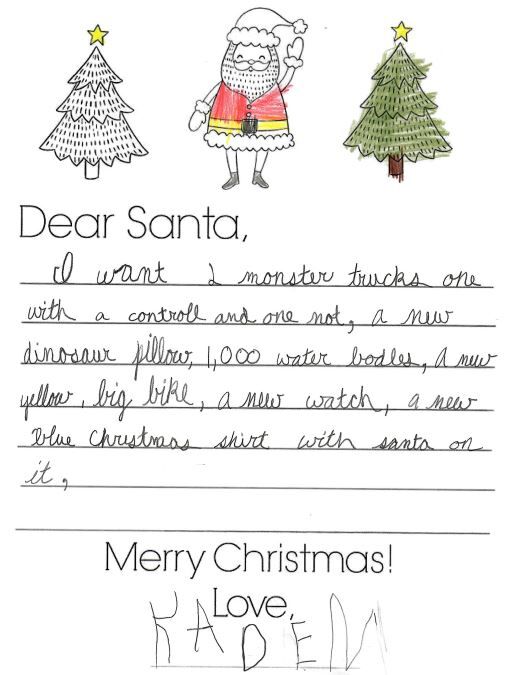 Dear Santa,
I want 2 monster trucks one
with a controll and one not, a new
dinosaur pillow, 1,000 water bodles, A new
yellow, big bike, a new watch, a new
blue Christmas shirt with santa on
it,
Merry Christmas!
Love,
KADEN